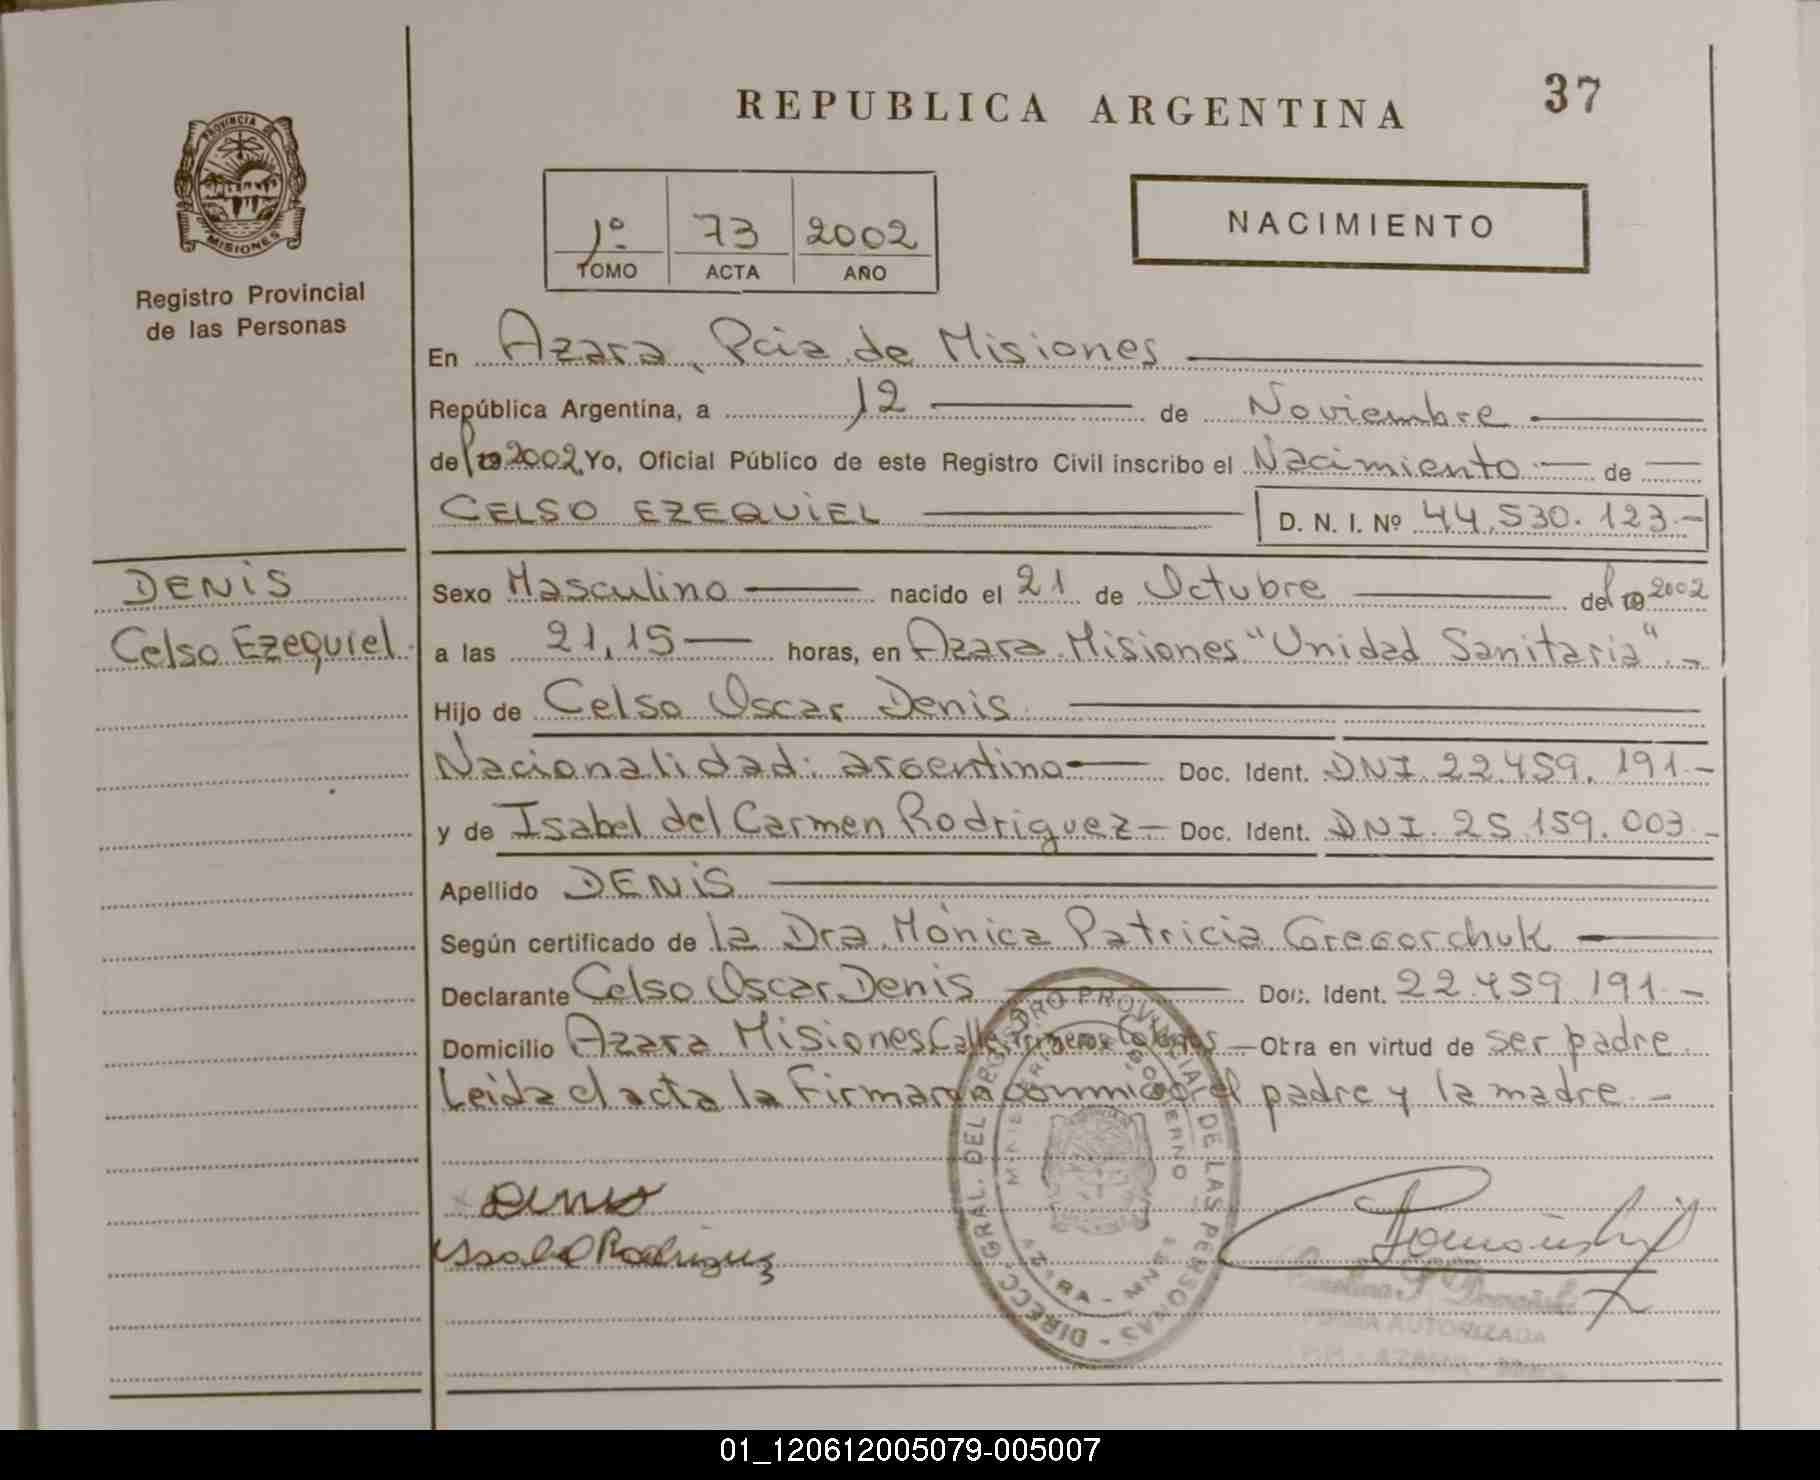 REPUBLICA ARGENTINA
37
PROVINCIA DE
MISIONES
Registro Provincial
de las Personas
1º 73 2002
TOMO ACTA AÑO
NACIMIENTO
En Azara, Pcia de Misiones
República Argentina, a 12 de Noviembre
del 2002 Yo, Oficial Público de este Registro Civil inscribo el Nacimiento de
CELSO EZEQUIEL D. N. I. Nº 44.530.123.-
DENIS
Celso Ezequiel
Sexo Masculino nacido el 21 de Octubre del 2002
a las 21,15 horas, en Azara Misiones "Unidad Sanitaria".-
Hijo de Celso Oscar Denis
Nacionalidad: argentino Doc. Ident. DNI 22.459.191.-
y de Isabel del Carmen Rodriguez- Doc. Ident. DNI. 25.159.003.-
Apellido DENIS
Según certificado de la Dra. Mónica Patricia Gregorchuk
Declarante Celso Oscar Denis Doc. Ident. 22.459.191.-
Domicilio Azara Misiones Calle Primeros Colonos - Obra en virtud de ser padre
Leida el acta la Firman conmigo el padre y la madre.-
DIRECC. GRAL. DEL REGISTRO PROVINCIAL DE LAS PERSONAS
AZARA - MNES
Denis
Issabel Rodriguez
FIRMA AUTORIZADA
01_120612005079-005007